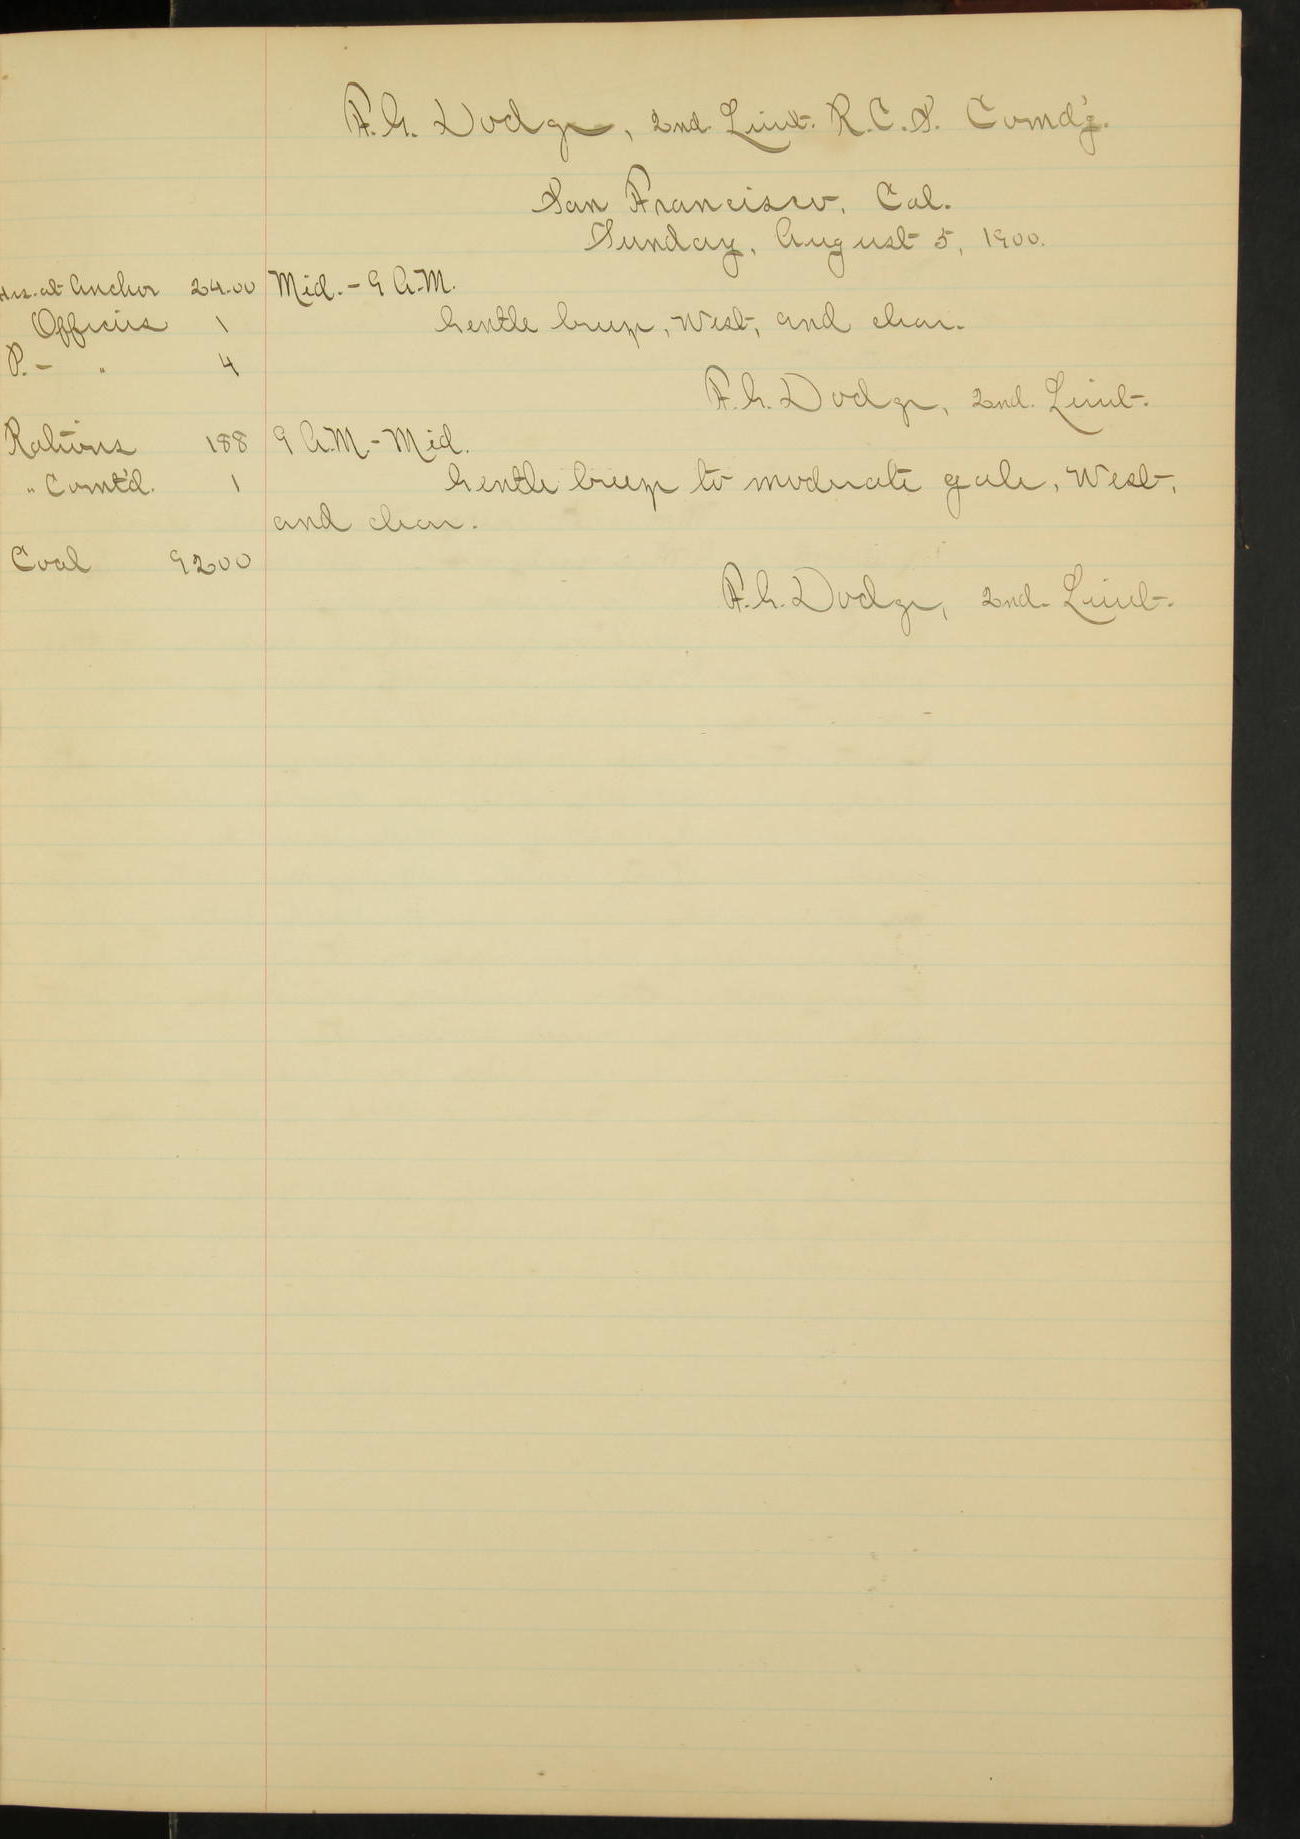 F.G. Dodge, 2nd. Lieut. R.C.S. Comd'g.
San Francisco, Cal.
Sunday, August 5, 1900.
Hrs. at Anchor 24.00 Mid. - 9 A.M.
Officers 1 Gentle breeze, West, and clear.
P. - " 4
F.G. Dodge, 2nd. Lieut.
Rations 188 9 A.M. - Mid.
" Comt'd. 1 Gentle breeze to moderate gale, West,
and clear.
Coal 9200
F.G. Dodge, 2nd. Lieut.